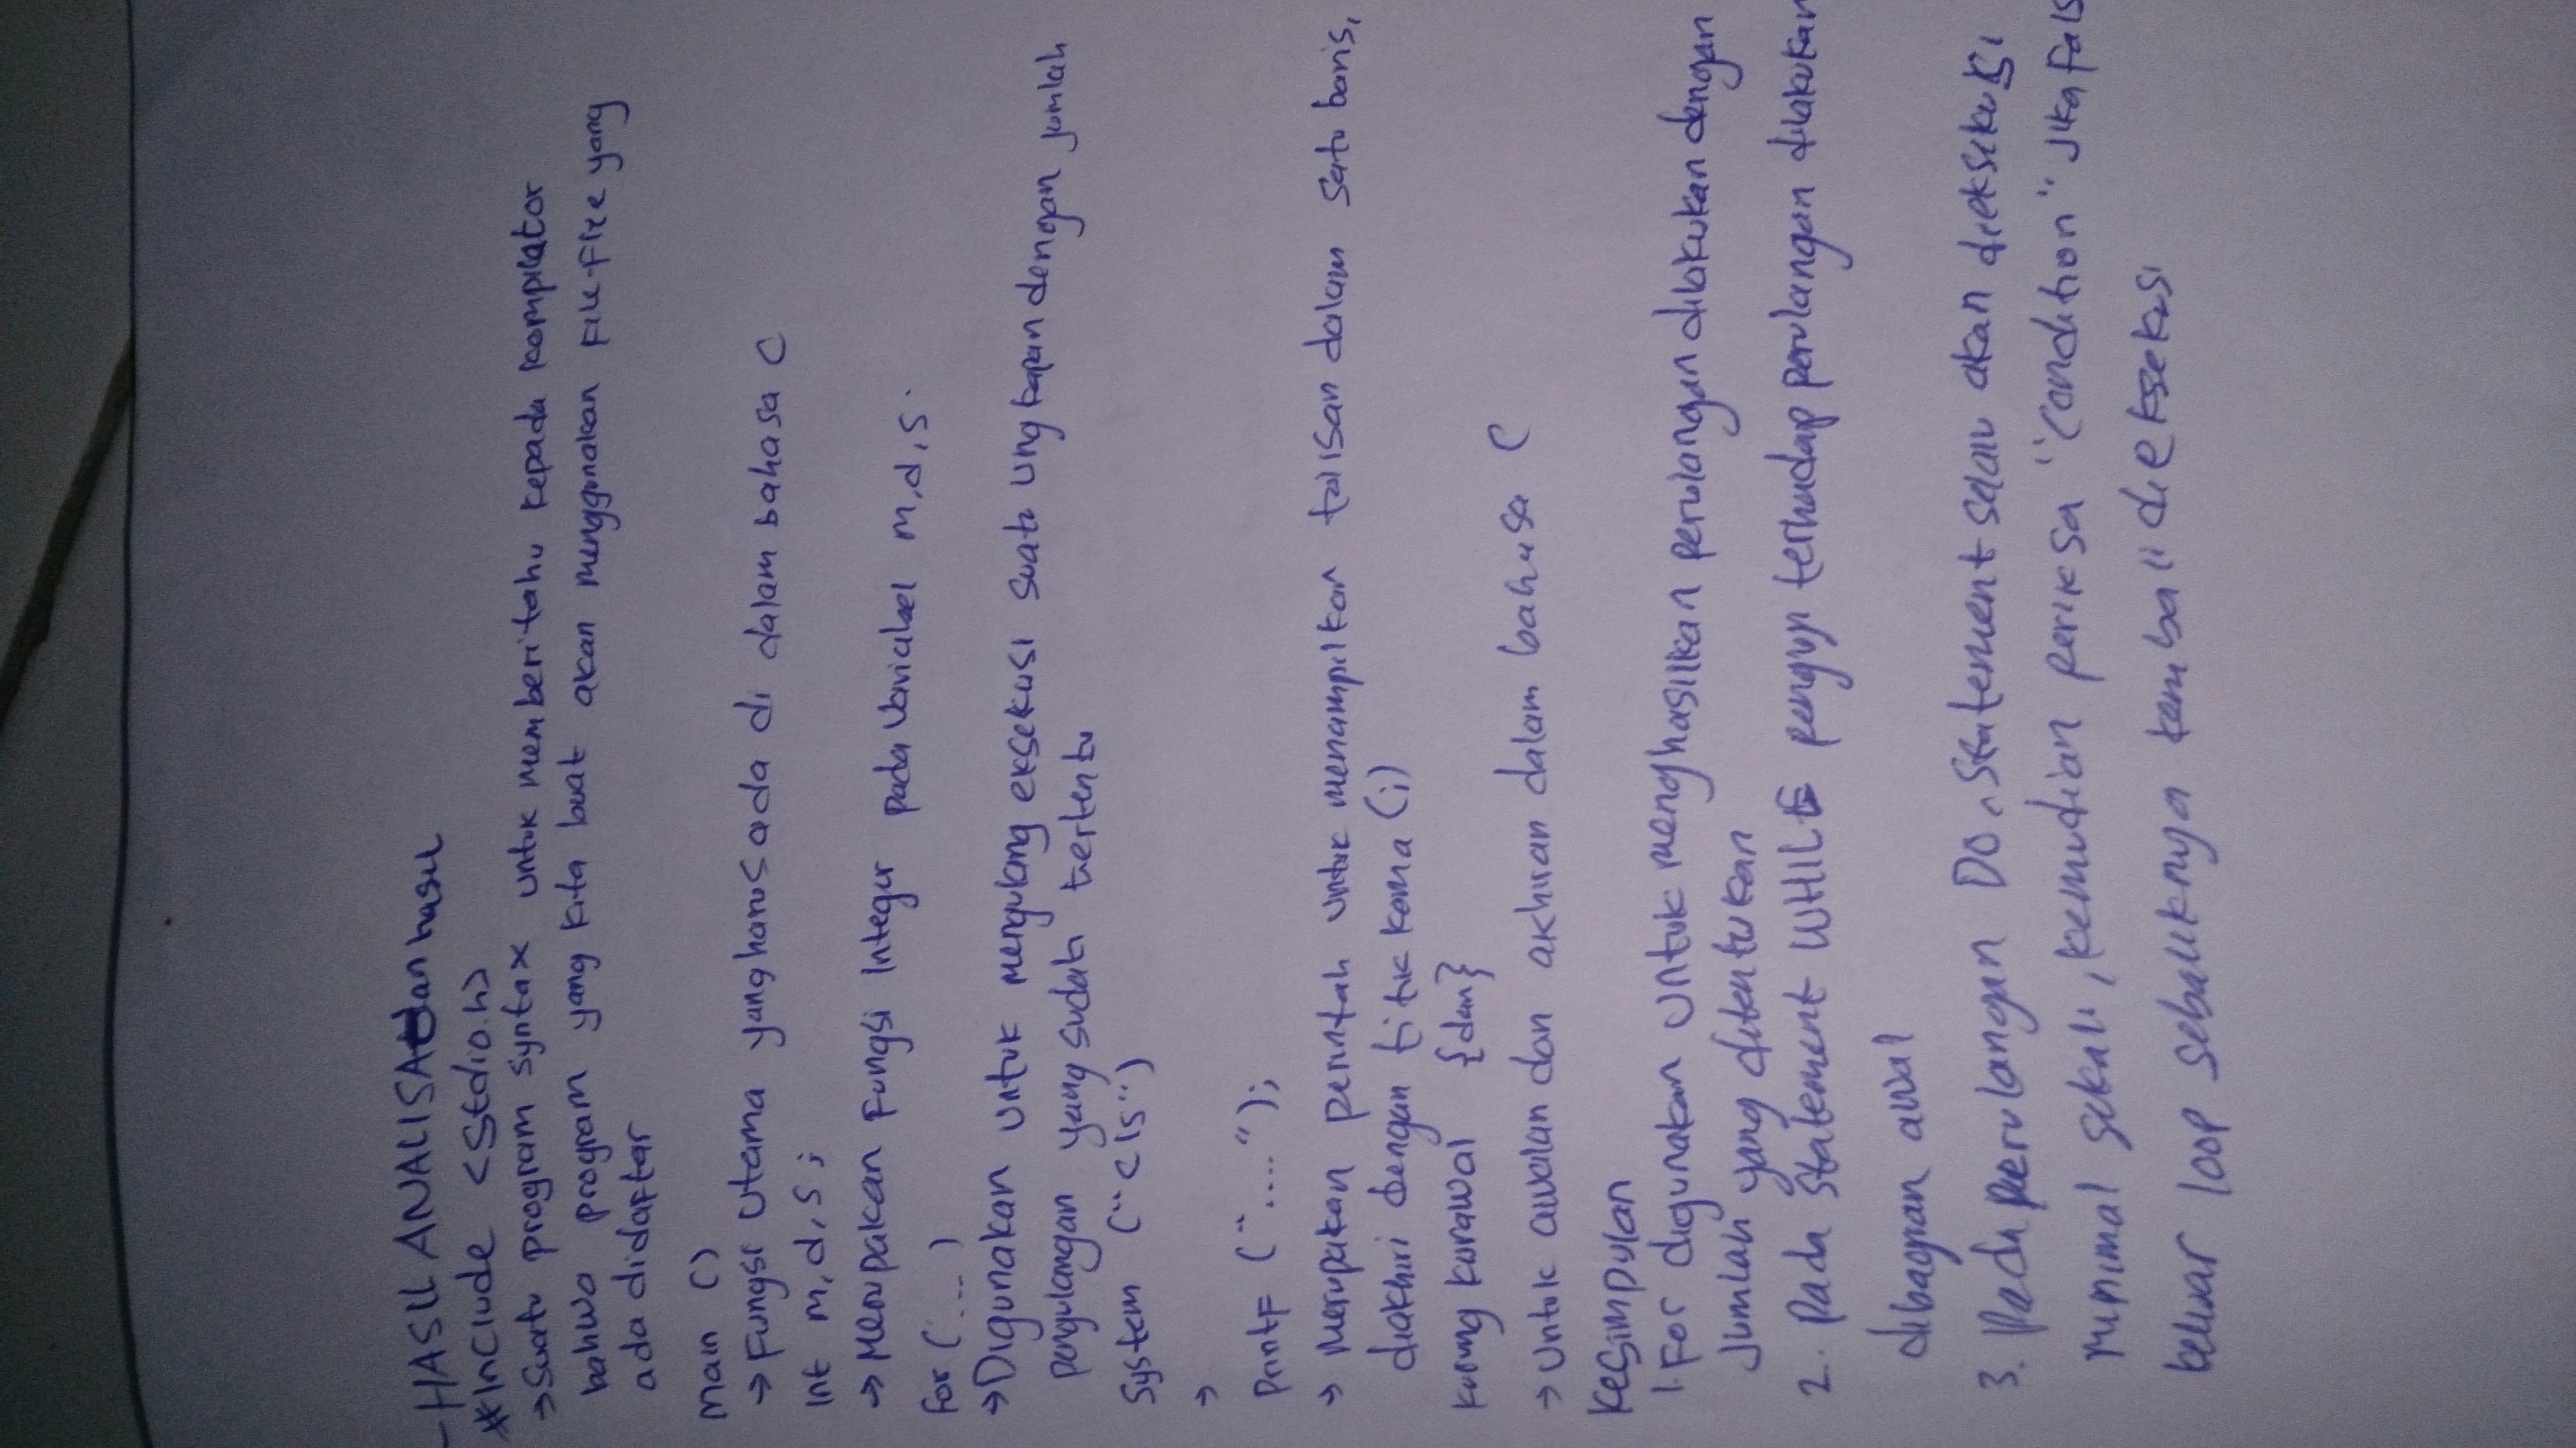 - HASIL ANALISA dan hasil
#include <Stdio.h>
→ Suatu program syntax untuk memberitahu kepada kompilator
bahwa program yang kita buat akan menggunakan File-File yang
ada didaftar
Main ()
→ Fungsi utama yang harus ada di dalam bahasa C
Int m,d,s;
→ Merupakan Fungsi Integer pada Variabel m,d,s.
For (...)
→ Digunakan untuk mengulang eksekusi suatu ungkapan dengan jumlah
pengulangan yang sudah tertentu
System ("cls")
→
PrintF ("....");
→ Merupakan perintah untuk menampilkan tulisan dalam satu baris,
diakhiri dengan titik koma (;)
Kurung kurawal {dan}
→ Untuk awalan dan akhiran dalam bahasa C
Kesimpulan
1. For digunakan untuk menghasilkan perulangan dilakukan dengan
Jumlah yang ditentukan
2. Pada Statement WHILE terhadap perulangan dilakukan
dibagian awal
3. Pada perulangan DO, Statement selalu akan dieksekusi
minimal sekali, kemudian periksa "Condition" Jika Fals
keluar loop sebaliknya kembali dieksekusi